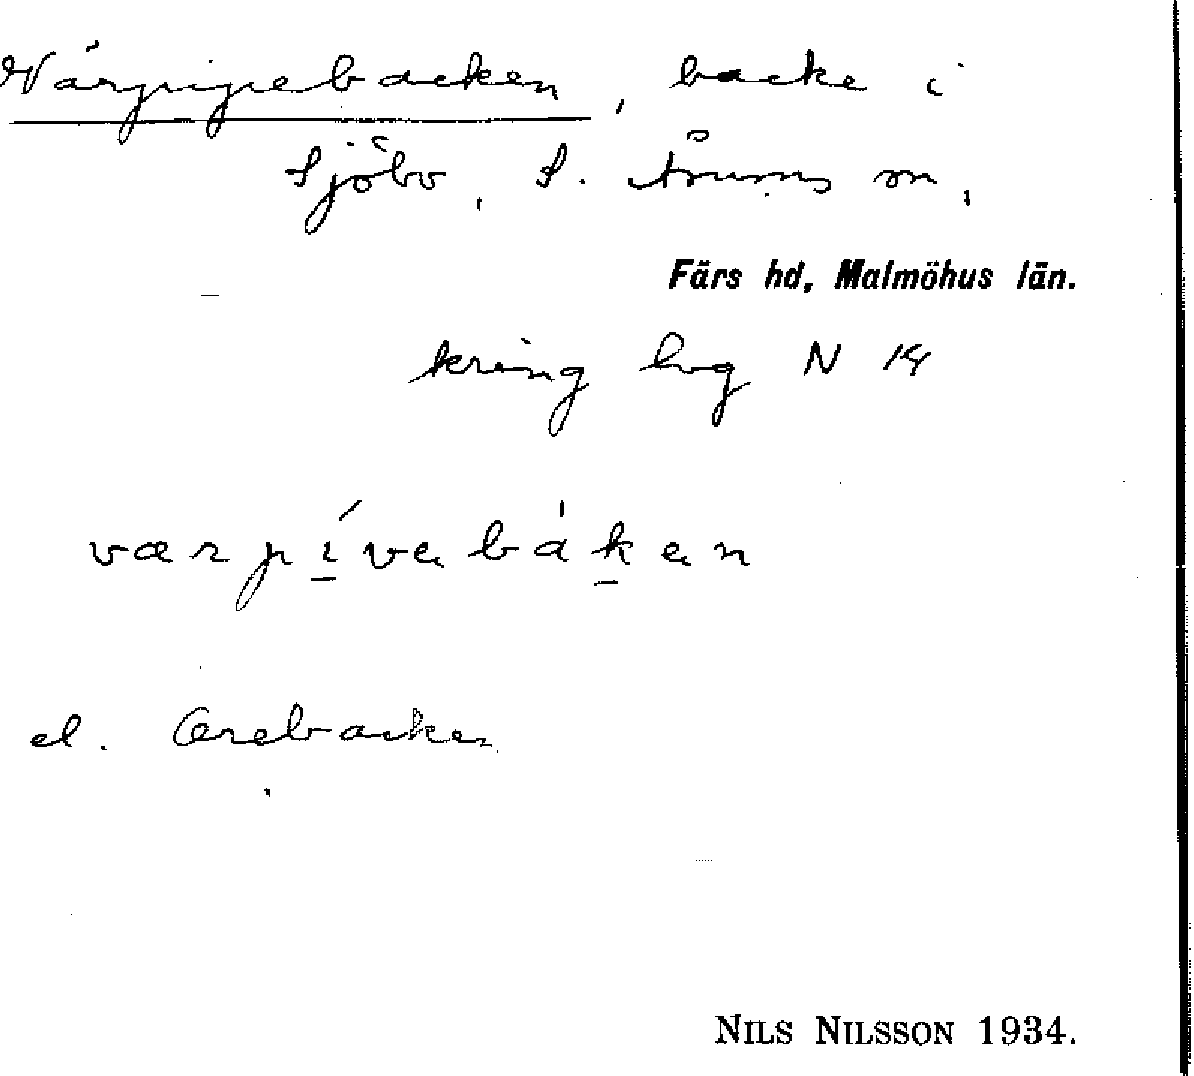 Värpipebacken, backe i
Sjöbo, S. Åsums sn,
Färs hd, Malmöhus län.
kring hvg N 14
værpívebákæn
el. Cerebacken
NILS NILSSON 1934.